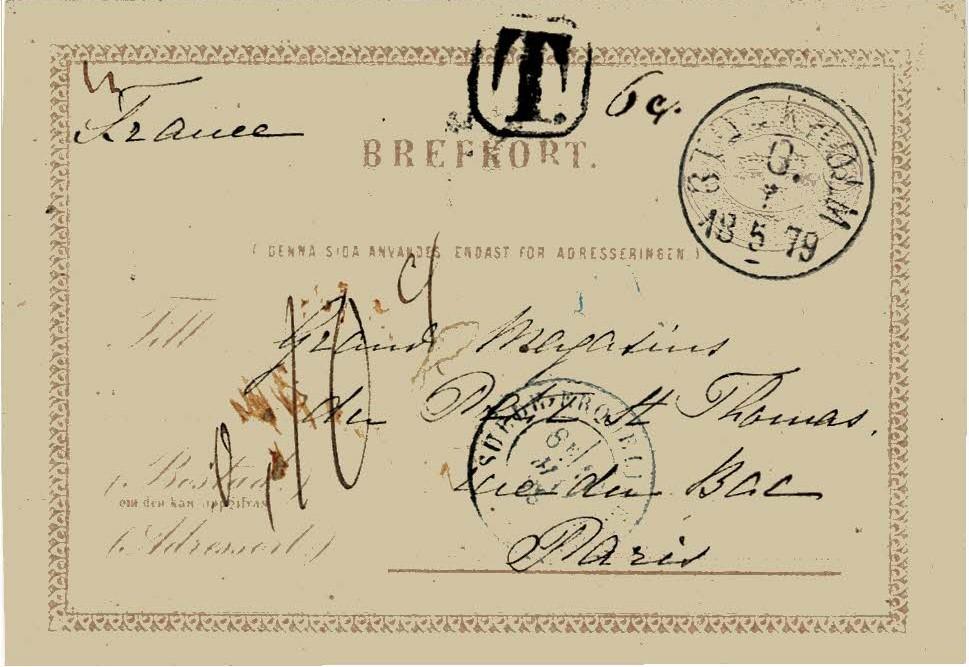 T.
6 c.
France
BREFKORT.
STOCKHOLM
8.
18 5 79
(DENNA SIDA ANVÄNDES ENDAST FÖR ADRESSERINGEN.)
Till
Grand Magasins
du Petit St Thomas.
Rue du Bac
Paris
(Bostad)
om den kan uppgifvas
(Adressort.)